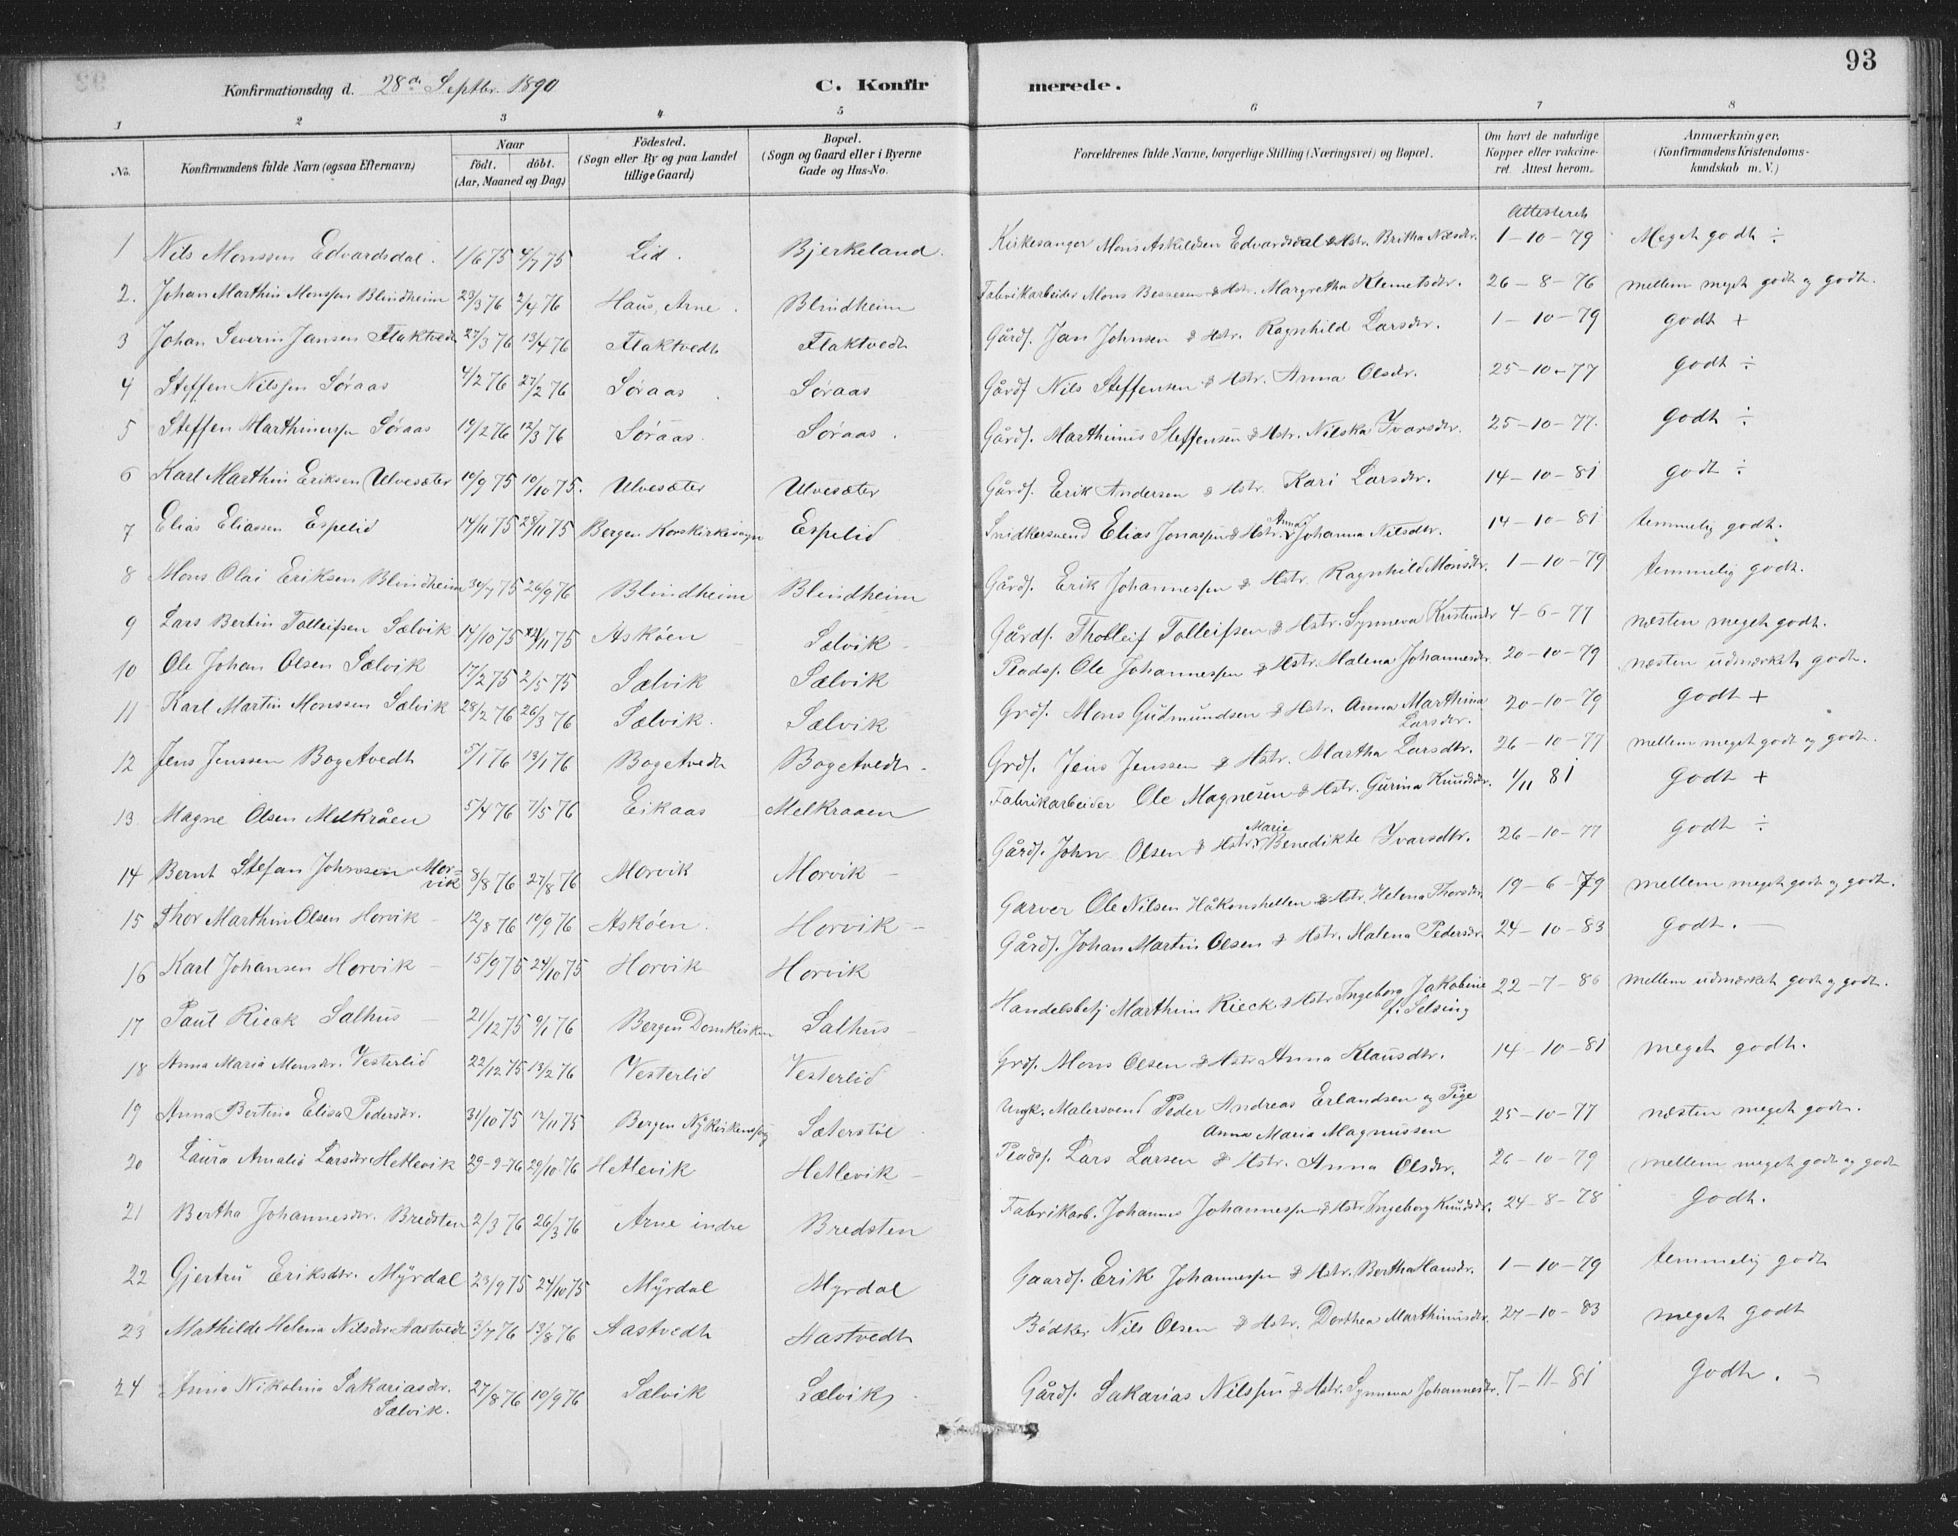 93
Konfirmationsdag d. 28de Septbr. 1890 C. Konfirmerede.
1 2 3 4 5 6 7 8
No. Konfirmandens fulde Navn (ogsaa Efternavn) Naar födt. döbt. (Aar, Maaned og Dag) Födested. (Sogn eller By og paa Landet tillige Gaard) Bopæl. (Sogn og Gaard eller i Byerne Gade og Hus-No. Forældrenes fulde Navne, borgerlige Stilling (Næringsvei) og Bopæl. Om havt de naturlige Kopper eller vakcineret. Attest herom. Anmærkninger. (Konfirmandens Kristendomskundskab m. V.)
Attesteret
1 Nils Monssen Edvardsdal. 1/6 75 4/7 75 Lid. Bjerkeland. Kirkesanger Mons Askildsen Edvardsdal & Hstr. Britha Nilsdr. 1-10-79 Meget godt ÷
2. Johan Marthin Monssen Blindheim 23/3 76 2/4 76 Haus, Arne. Blindheim Fabrikarbeider Mons Bessesen & Hstr. Margretha Klemetsdr. 26-8-76 mellem meget godt og godt.
3 Johan Severin Jansen Flaktvedt 27/3 76 13/4 76 Flaktvedt Flaktvedt Gårdf. Jan Johnsen & Hstr. Ragnhild Larsdr. 1-10-79 godt +
4 Steffen Nilssen Søraas 4/2 76 27/2 76 Søraas. Søraas Gårdf Nils Steffensen & Hstr. Anna Olsdr. 25-10-77 godt ÷
5 Steffen Marthinussen Søraas 19/2 76 12/3 76 Søraas. Søraas. Gårdf. Marthinus Steffensen & Hstr. Nilska Ivarsdr. 25-10-77. godt ÷
6 Karl Marthin Eriksen Ulvesæter 10/9 75 10/10 75. Ulvesæter Ulvesæter Gårdf. Erik Andersen & Hstr. Kari Larsdr. 14-10-81 godt ÷
7 Elias Eliassen Espelid 14/11 75 28/11 75 Bergen Korskirkesogn Espelid Snidkersvend Elias Jonassen & Hstr. Anna Johanna Nilsdtr. 14-10-81 temmelig godt.
8 Mons Olai Eriksen Blindheim 30/7 75 26/9 76 Blindheim Blindheim Gårdf. Erik Johannessen & Hstr. Ragnhild Monsdr. 1-10-79 temmelig godt.
9 Lars Bertin Tolleifsen Sælvik 14/10 75 21/11 75 Askøen Sælvik Gårdf. Tholleif Tolleifsen & Hstr. Synneva Kristensdr 4-6-77 næsten meget godt.
10 Ole Johan Olsen Sælvik 17/2 75 2/5 75 Sælvik Sælvik Pladsf. Ole Johannessen & Hstr. Malena Johannesdr. 20-10-79 næsten udmerket godt.
11 Karl Martin Monssen Sælvik 28/2 76 26/3 76 Sælvik. Sælvik Grdf. Mons Gudmundsen & Hstr. Anna Marthina Larsdr. 20-10-79 Godt +
12 Jens Jenssen Bogetvedt 5/1 76 13/1 76 Bogetvedt Bogetvedt. Grdf. Jens Jenssen & Hstr. Martha Larsdtr. 26-10-77 mellem meget godt og godt.
13 Magne Olsen Melkråen 5/4 76 7/5 76 Eikaas Melkraaen Fabrikarbeider Ole Magnesen & Hstr. Gurina Knudsdr. 1/11 81 Godt +
14 Bernt Stefan Johnsen Morvik 3/8 76 27/8 76 Morvik Morvik Gårdf. John Olsen & Hstr. Marie Benedikte Ivarsdtr. 26-10-77 Godt ÷
15 Thor Marthin Olsen Horvik 12/8 76 10/9 76 Askøen. Horvik Garver Ole Nilsen Håkonshellen & Hstr. Helena Thorsdr. 19-6-79 mellem meget godt og godt.
16 Karl Johansen Horvik 15/9 75 24/10 75 Horvik Horvik Gårdf. Johan Martin Olsen & Hstr. Malena Pedersdr. 24-10-83 Godt.
17 Paul Rieck Salhus 21/12 75 9/1 76 Bergen Domkirken Salhus Handelsbetj Marthin Rieck & Hstr Ingeborg Jakobine f. Selsing 22-7-86 mellem udmærket godt og godt.
18 Anna Maria Monsdr. Vesterlid 22/12 75 13/2 76 Vesterlid Vesterlid Grdf. Mons Olsen & Hstr Anna Klausdtr. 14-10-81 meget godt.
19 Anna Bertina Elisa Pedersdr. 31/10 75 12/11 75 Bergen Nykirkensogn Sæterstøl Ungk. Malersvend Peder Andreas Erlandsen og Pige Anna Maria Magnussen 25-10-77 næsten meget godt.
20 Laura Amalia Larsdr Hetlevik 29-9-76 29/10 76 Hetlevik Hetlevik Pladsf. Lars Larsen & Hstr. Anna Olsdr. 26-10-79 mellem meget godt og godt
21 Bertha Johannesdr. Bredsten 2/3 76 26/3 76 Arne indre Bredsten Fabrikarb. Johannes Johannessen & Hstr Ingeborg Knudsdr. 24-8-78 Godt.
22 Gjertru Eriksdtr. Myrdal 23/9 75 24/10 75 Myrdal Myrdal Gaardf. Erik Johannessen & Hstr. Bertha Hansdr. 1-10-79 temmelig godt
23 Mathilde Helena Nilsdr Aastvedt 3/7 76 13/8 76 Aastvedt Aastvedt Bødker Nils Olsen & Hstr. Dorthea Marthinusdr. 27-10-83 meget godt
24 Anna Nikolina Sakariasdr. Sælvik. 27/8 76 10/9 76 Sælvik Sælvik Gårdf. Sakarias Nilssen & Hstr. Synneva Johannesdr. 7-11-81 Godt.